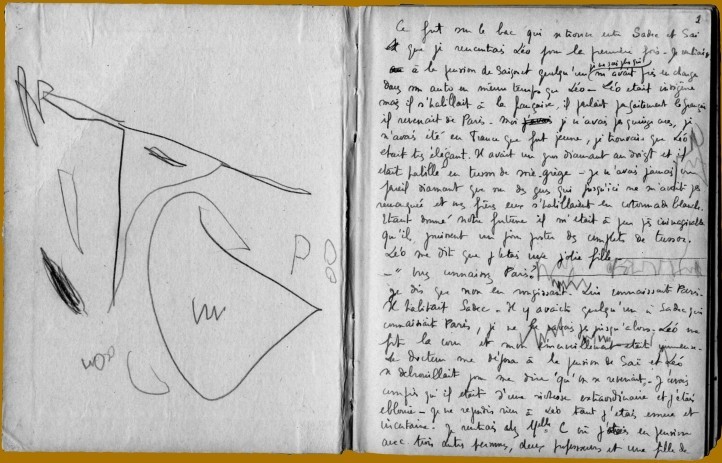 1
Ce fut sur le bac qui se trouve entre Sadec et Saï
que je rencontrai Léo pour la première fois. Je rentrais
à la pension de Saigon et quelqu'un, je ne sais plus qui, m'avait pris en charge
dans son auto en même temps que Léo. Léo était indigène
mais il s'habillait à la française, il parlait parfaitement le français,
il revenait de Paris. Moi je n'avais pas quinze ans, je
n'avais été en France que fort jeune, je trouvais que Léo
était très élégant. Il avait un gros diamant au doigt et il
était habillé en tussor de soie grège. Je n'avais jamais vu
pareil diamant que sur des gens qui jusqu'ici ne m'avaient pas
remarquée et mes frères eux s'habillaient en cotonnade blanche.
Étant donné notre fortune il m'était à peu près inimaginable
qu'ils puissent un jour porter des complets de tussor.
Léo me dit que j'étais une jolie fille.
— "Vous connaissez Paris?
Je dis que non en rougissant. Lui connaissait Paris.
Il habitait Sadec. Il y avait quelqu'un à Sadec qui
connaissait Paris, je ne le savais pas jusqu'alors. Léo me
fit la cour et mon émerveillement était immense.
Le docteur me déposa à la pension de Saï et Léo
se débrouillait pour me dire "qu'on se reverrait". J'avais
compris qu'il était d'une richesse extraordinaire et j'étais
éblouie. Je ne répondis rien à Léo tant j'étais émue et
incertaine. Je rentrais chez Mlle C où j'étais en pension
avec trois autres personnes, deux professeurs et une fille de